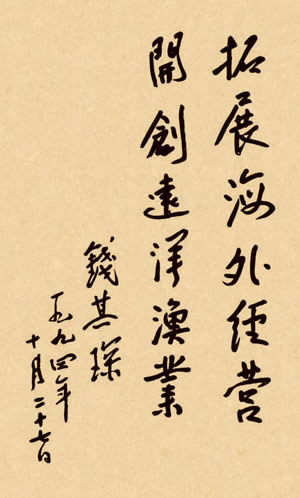 拓展海外经营
開創遠洋漁業
錢其琛
一九九四年
十月二十七日